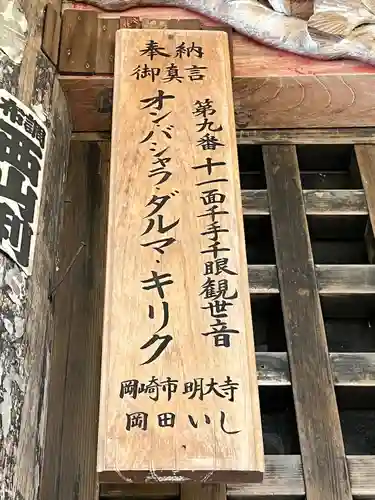 奉納
御真言
第九番 十一面千手千眼観世音
オン・バシャラ・ダルマ・キリク
岡崎市 明大寺
岡田いし
調布
西山 河